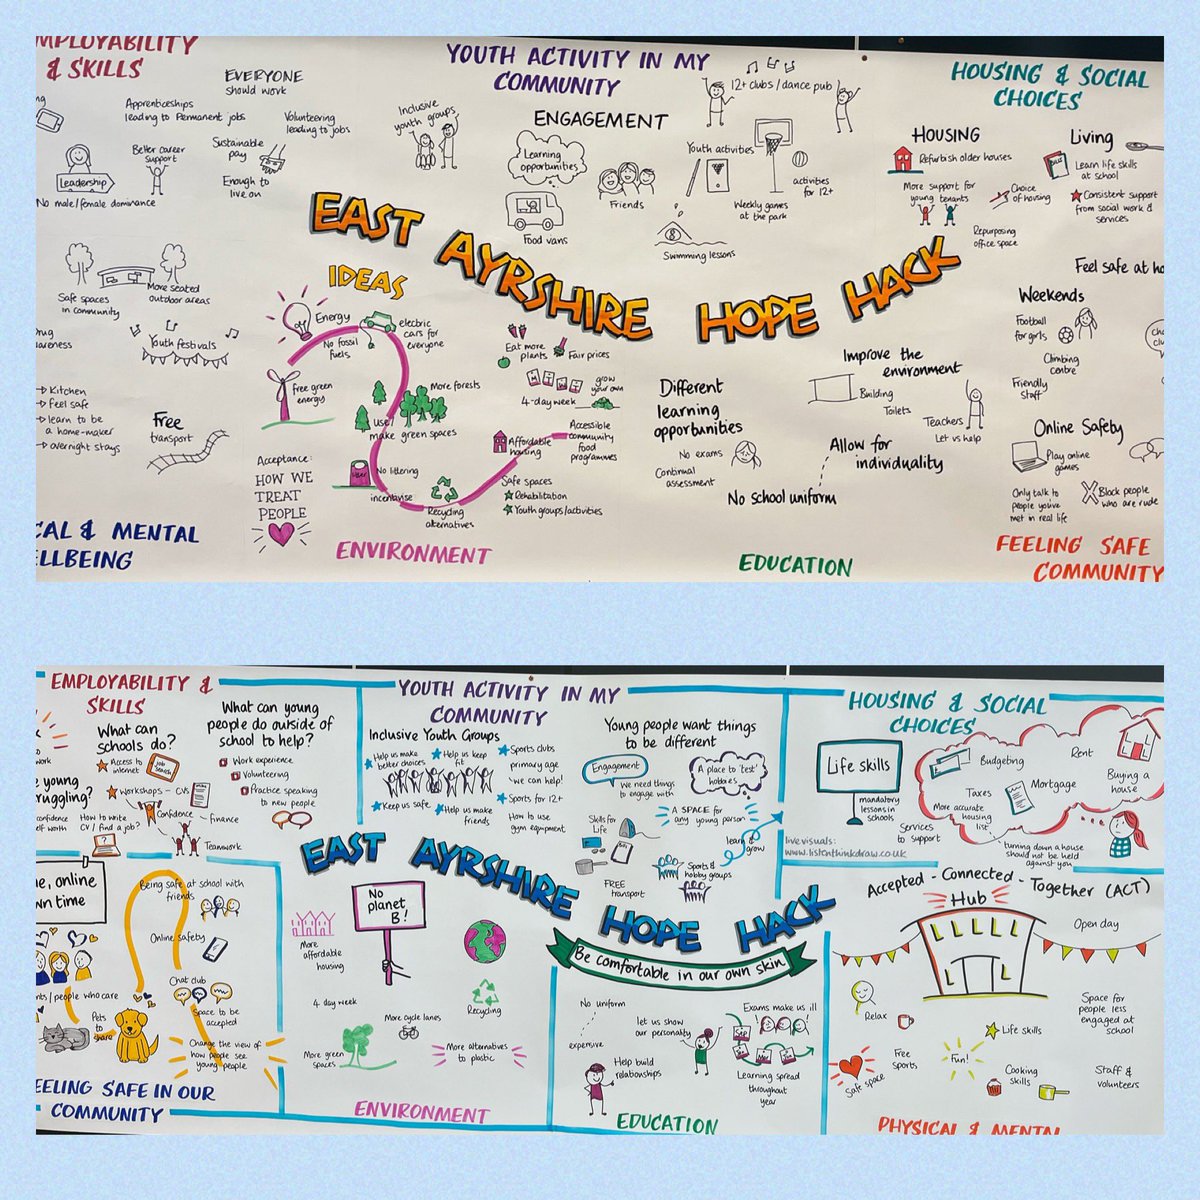 MPLOYABILITY
& SKILLS
EVERYONE
should work
Apprenticeships
leading to Permanent jobs
Volunteering
leading to jobs
Better career
support
Sustainable
pay
Leadership
Enough to
live on
No male/female dominance
Safe spaces
in community
More seated
outdoor areas
Youth festivals
Kitchen
feel safe
learn to be
a home-maker
overnight stays
Free
transport
CAL & MENTAL
ELLBEING
YOUTH ACTIVITY IN MY
COMMUNITY
Inclusive
youth groups
ENGAGEMENT
Learning
opportunities
Friends
Food vans
12+ clubs / dance pub
Youth activities
activities
for 12+
Weekly games
at the park
Swimming lessons
HOUSING & SOCIAL
CHOICES
HOUSING
Refurbish older houses
More support for
young tenants
Choice
of housing
Repurposing
office space
Living
Learn life skills
at school
Consistent support
from social work &
services
EAST AYRSHIRE HOPE HACK
IDEAS
Energy
No fossil
fuels
electric
cars for
everyone
Free green
energy
More forests
use/
make green spaces
Acceptance:
HOW WE
TREAT
PEOPLE
No littering
incentivise
Recycling
alternatives
Eat more
plants
Fair prices
M T W T
4-day week
grow
your own
Affordable
housing
Accessible
community
food
programmes
Safe spaces
Rehabilitation
Youth groups/activities
ENVIRONMENT
Different
learning
opportunities
No exams
Continual
assessment
Improve the
environment
Building
Toilets
Teachers
Let us help
Allow for
individuality
No school uniform
EDUCATION
Feel safe at ho
Weekends
Football
for girls
Climbing
centre
Friendly
staff
Online Safety
Play online
games
Only talk to
people you've
met in real life
Block people
who are rude
FEELING SAFE
COMMUNITY
EMPLOYABILITY &
SKILLS
What can
schools do?
Access to
internet
Job
Search
Workshops – CVs
How to write
CV / find a job?
Confidence
finance
Teamwork
What can young
people do outside of
school to help?
Work experience
Volunteering
Practice speaking
to new people
e young
ruggling?
YOUTH ACTIVITY IN MY
COMMUNITY
Inclusive Youth Groups
Help us make
better choices
Help us keep
fit
Sports clubs
primary age
we can help!
Keep us safe
Help us make
friends
Sports for 12+
How to use
gym equipment
Young people want things
to be different
Engagement
We need things
to engage with
A place to 'test'
hobbies
A SPACE for
any young person
Skills for
Life
learn &
grow
Sports &
hobby groups
FREE
transport
HOUSING & SOCIAL
CHOICES
Life skills
mandatory
lessons in
schools
Services
to support
Budgeting
Rent
Taxes
Mortgage
Buying a
house
More accurate
housing
list
turning down a house
should not be held
against you
live visuals:
www.listenthinkdraw.co.uk
EAST AYRSHIRE HOPE HACK
Be comfortable in our own skin
e, online
wn time
Being safe at school with
friends
Online safety
Chat club
Space to be
accepted
nts/people who care
Pets
to
share
Change the view of
how people see
young people
EELING SAFE IN OUR
COMMUNITY
No
planet
B!
More
affordable
housing
4 day week
More cycle lanes
Recycling
More green
spaces
More alternatives
to plastic
ENVIRONMENT
No uniform
expensive
let us show
our personality
Help build
relationships
Exams make us ill
Learning spread
throughout
year
EDUCATION
Accepted - Connected - Together (ACT)
Hub
Open day
Relax
Life skills
Space for
people less
engaged at
school
Safe space
Free
Sports
Fun!
Cooking
skills
Staff &
volunteers
PHYSICAL & MENTAL